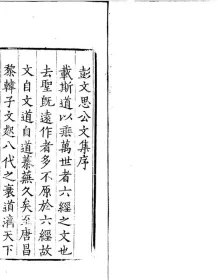 彭文思公文集序
載斯道以垂萬世者六經之文也
去聖既遠作者多不原於六經故
文自文道自道蓁蕪久矣至唐昌
黎韓子文起八代之衰道濟天下